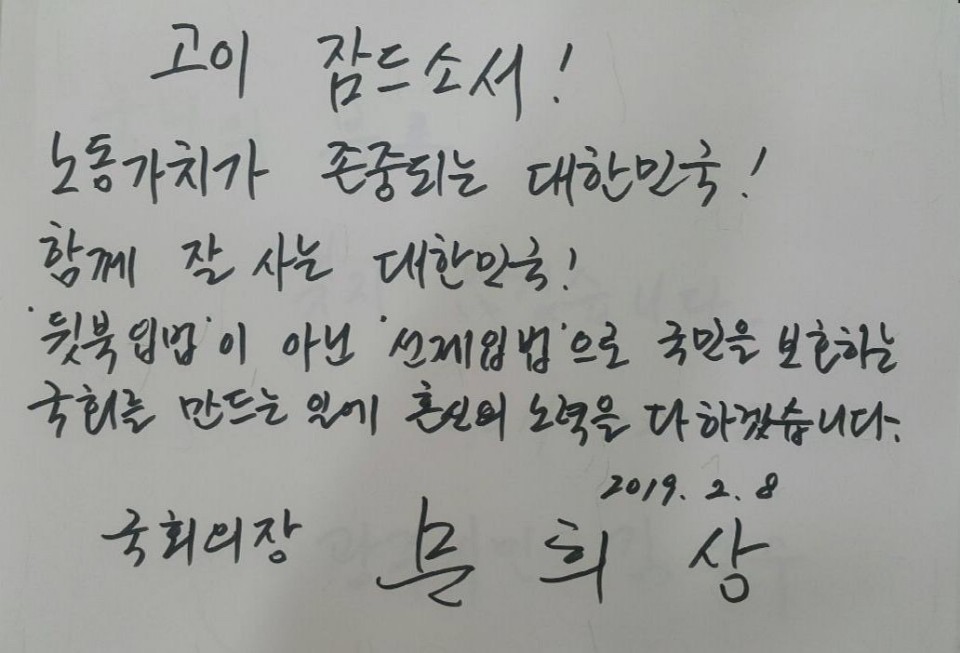 고이 잠드소서!
노동가치가 존중되는 대한민국!
함께 잘 사는 대한민국!
'뒷북입법'이 아닌 '선제입법'으로 국민을 보호하는
국회를 만드는 일에 혼신의 노력을 다하겠습니다.
2019. 2. 8
국회의장 문 희 상